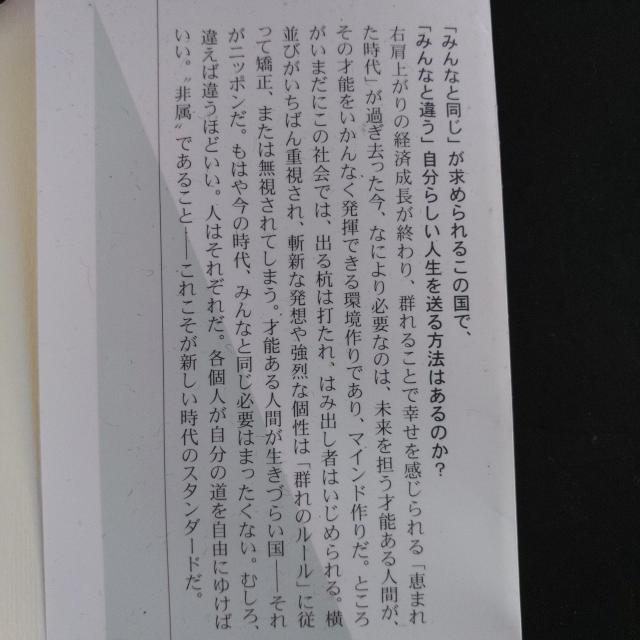 「みんなと同じ」が求められるこの国で、
「みんなと違う」自分らしい人生を送る方法はあるのか?
右肩上がりの経済成長が終わり、群れることで幸せを感じられる「恵まれ
た時代」が過ぎ去った今、なにより必要なのは、未来を担う才能ある人間が、
その才能をいかんなく発揮できる環境作りであり、マインド作りだ。ところ
がいまだにこの社会では、出る杭は打たれ、はみ出し者はいじめられる。横
並びがいちばん重視され、斬新な発想や強烈な個性は「群れのルール」に従
って矯正、または無視されてしまう。才能ある人間が生きづらい国――それ
がニッポンだ。もはや今の時代、みんなと同じ必要はまったくない。むしろ、
違えば違うほどいい。人はそれぞれだ。各個人が自分の道を自由にゆけば
いい。〝非属〟であること――これこそが新しい時代のスタンダードだ。